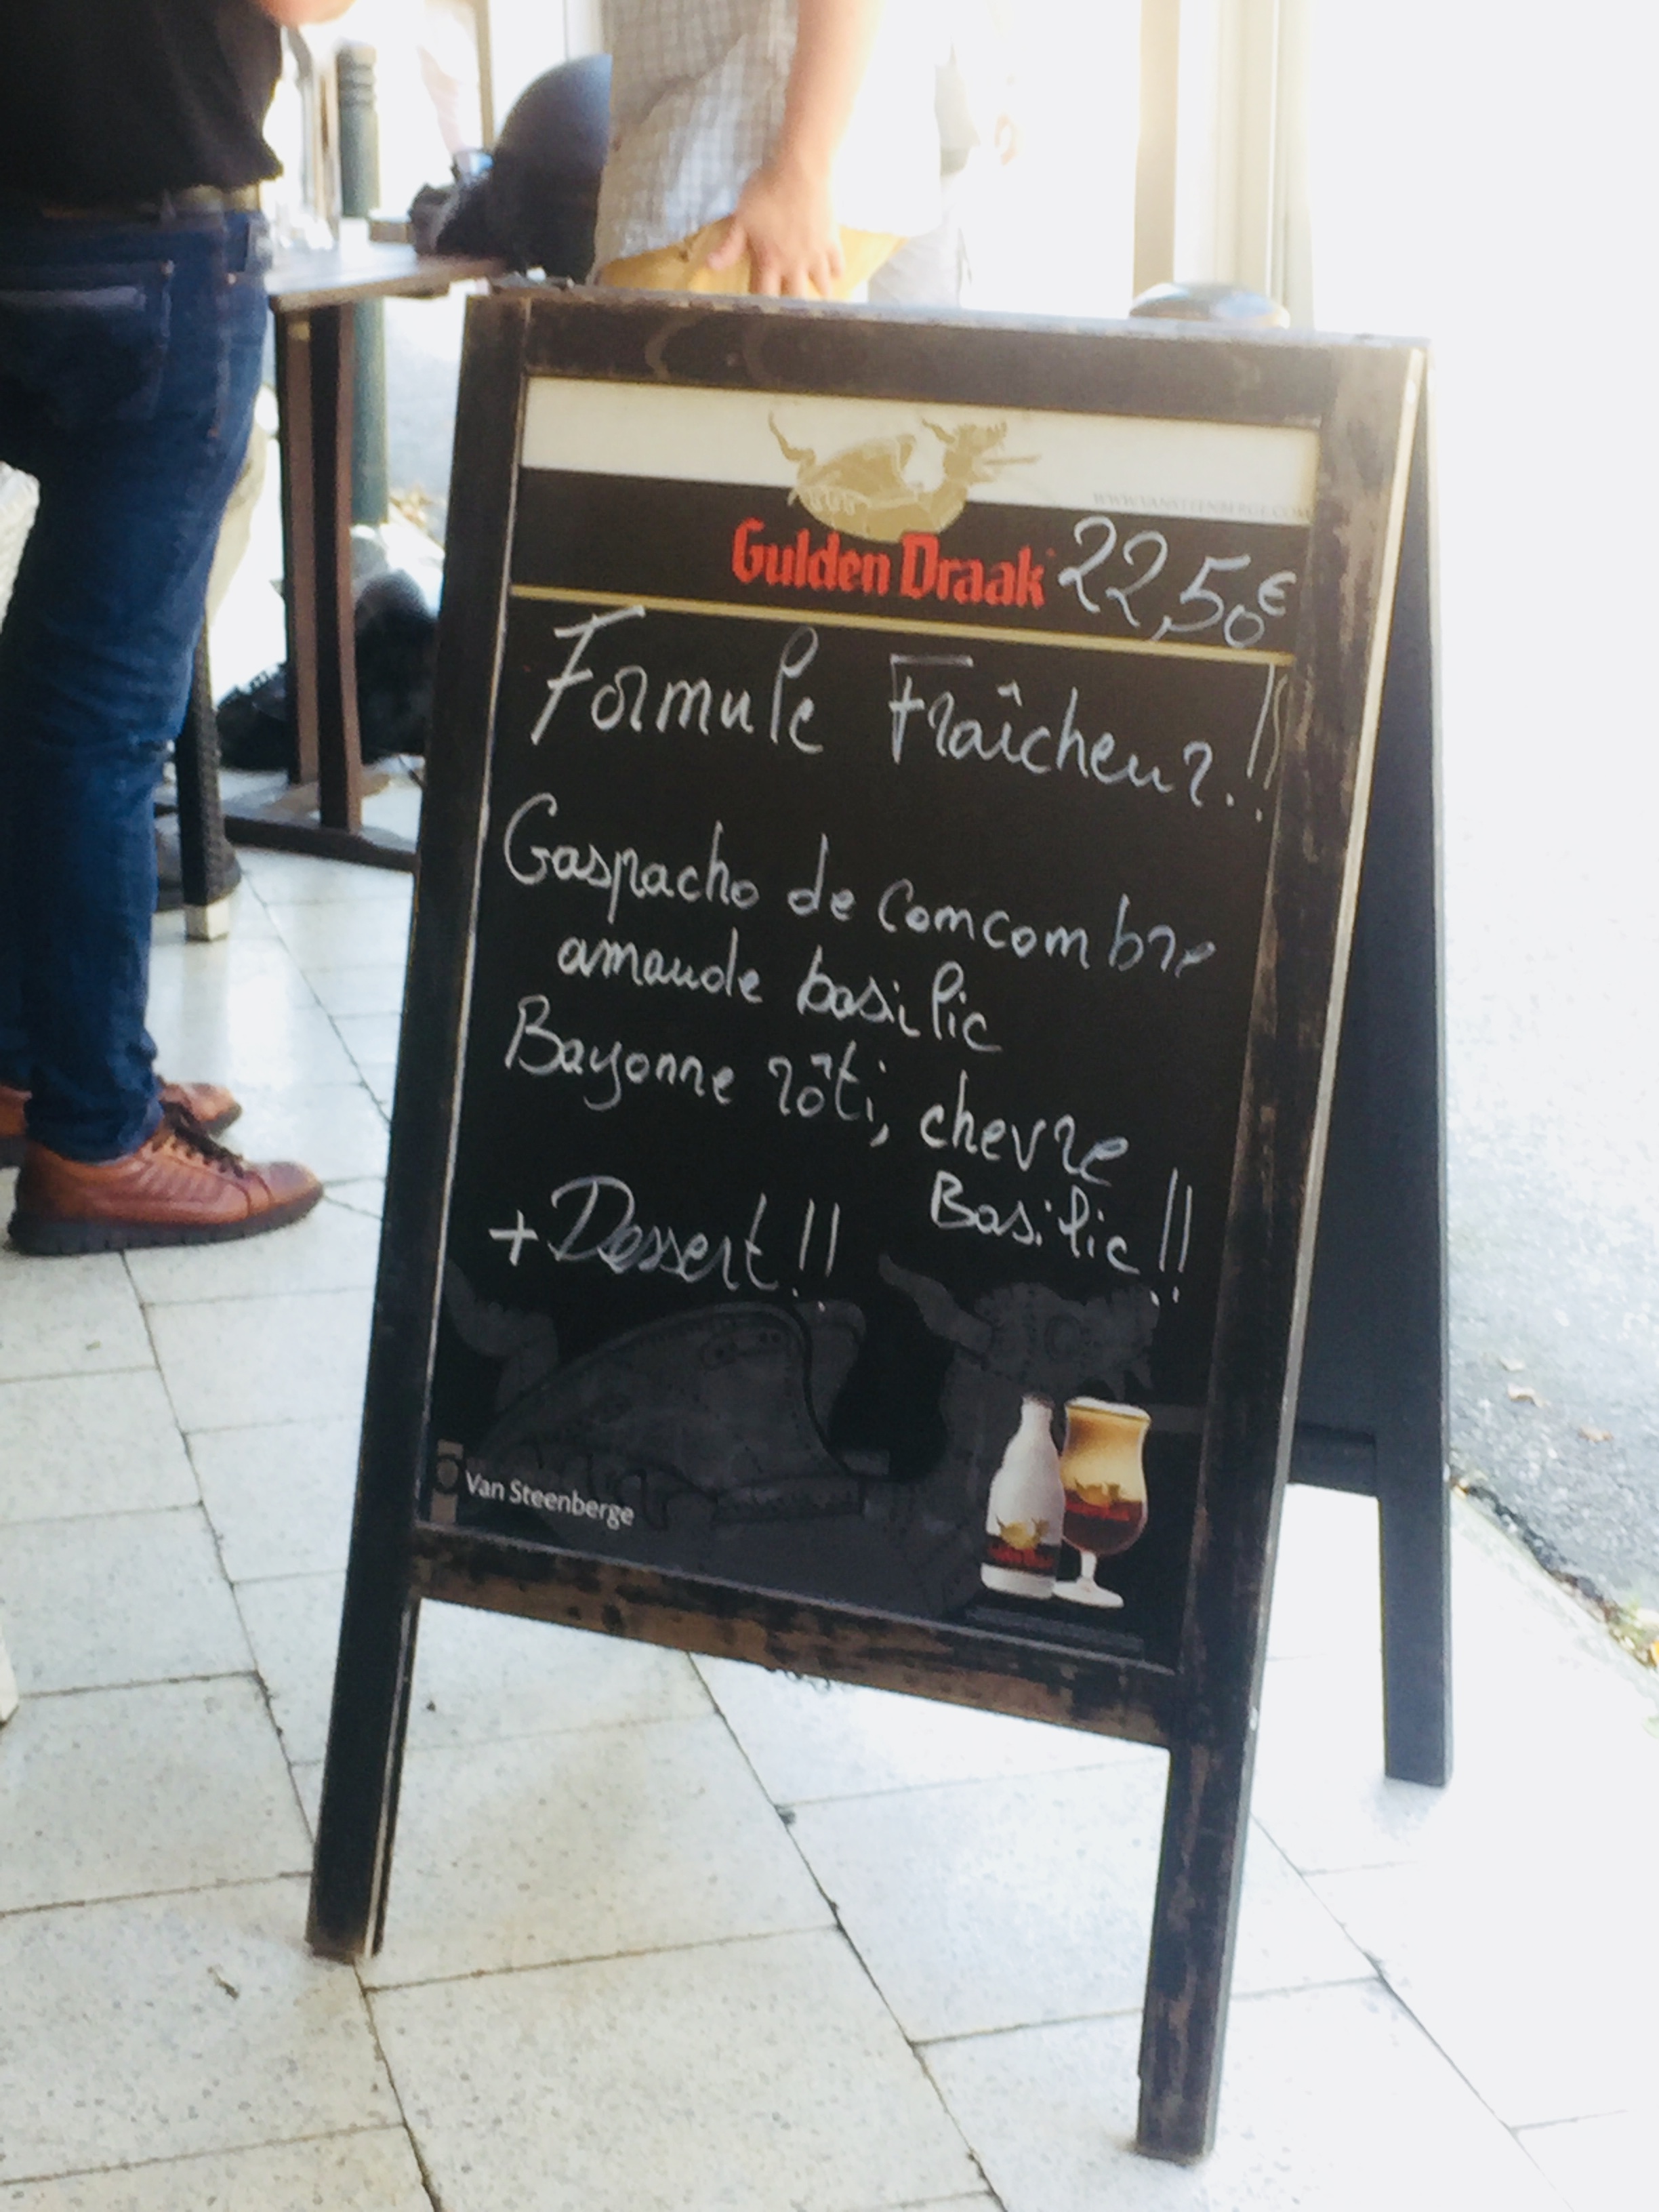 WWW.VANSTEENBERGE.COM
Gulden Draak 22,50€
Formule Fraîcheur!!
Gaspacho de Comcombre
amande basilic
Bayonne rôti, chevre
Basilic!!
+ Dessert!!
Van Steenberge